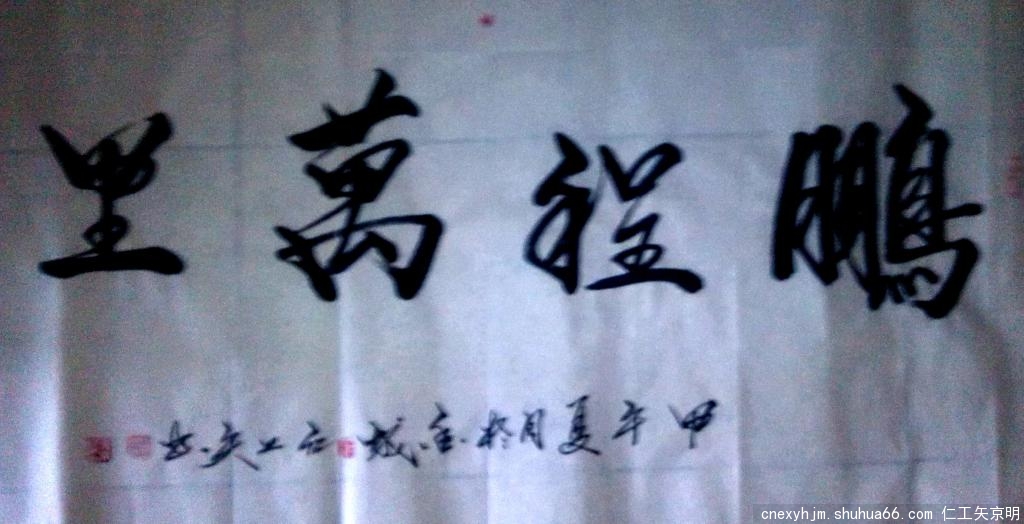 鵬程萬里
甲午夏月於金城仁工矢书
cnexyhjm.shuhua66.com 仁工矢京明